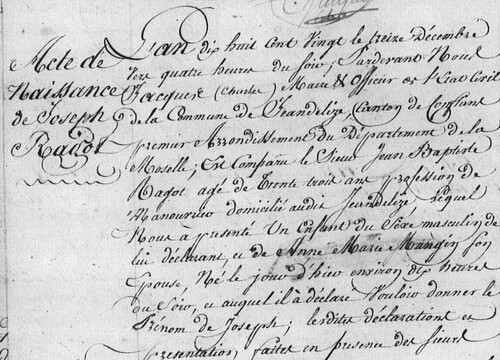 Acte de
Naissance
de Joseph
Ragot
L'an dix huit Cent Vingt le treize Décembre
vers quatre heures du Soir, Pardevant Nous
Jacques Maire & Officier de l'Etat Civil
de la Commune de Jeandelize, Canton de Conflans
premier Arrondissement du Département de la
Moselle; Est Comparu le Sieur Jean Baptiste
Ragot agé de Trente trois ans profession de
Manoeuvre domicilié audit Jeandelize lequel
Nous à présenté Un Enfant du Sexe masculin de
lui déclarant et de Anne Marie Mangin Son
Epouse, Né le jour d'hier environ dix heures
du Soir, et auquel il à déclaré Vouloir donner le
Prénom de Joseph; les dites déclarations et
présentation faites en présence des Sieurs